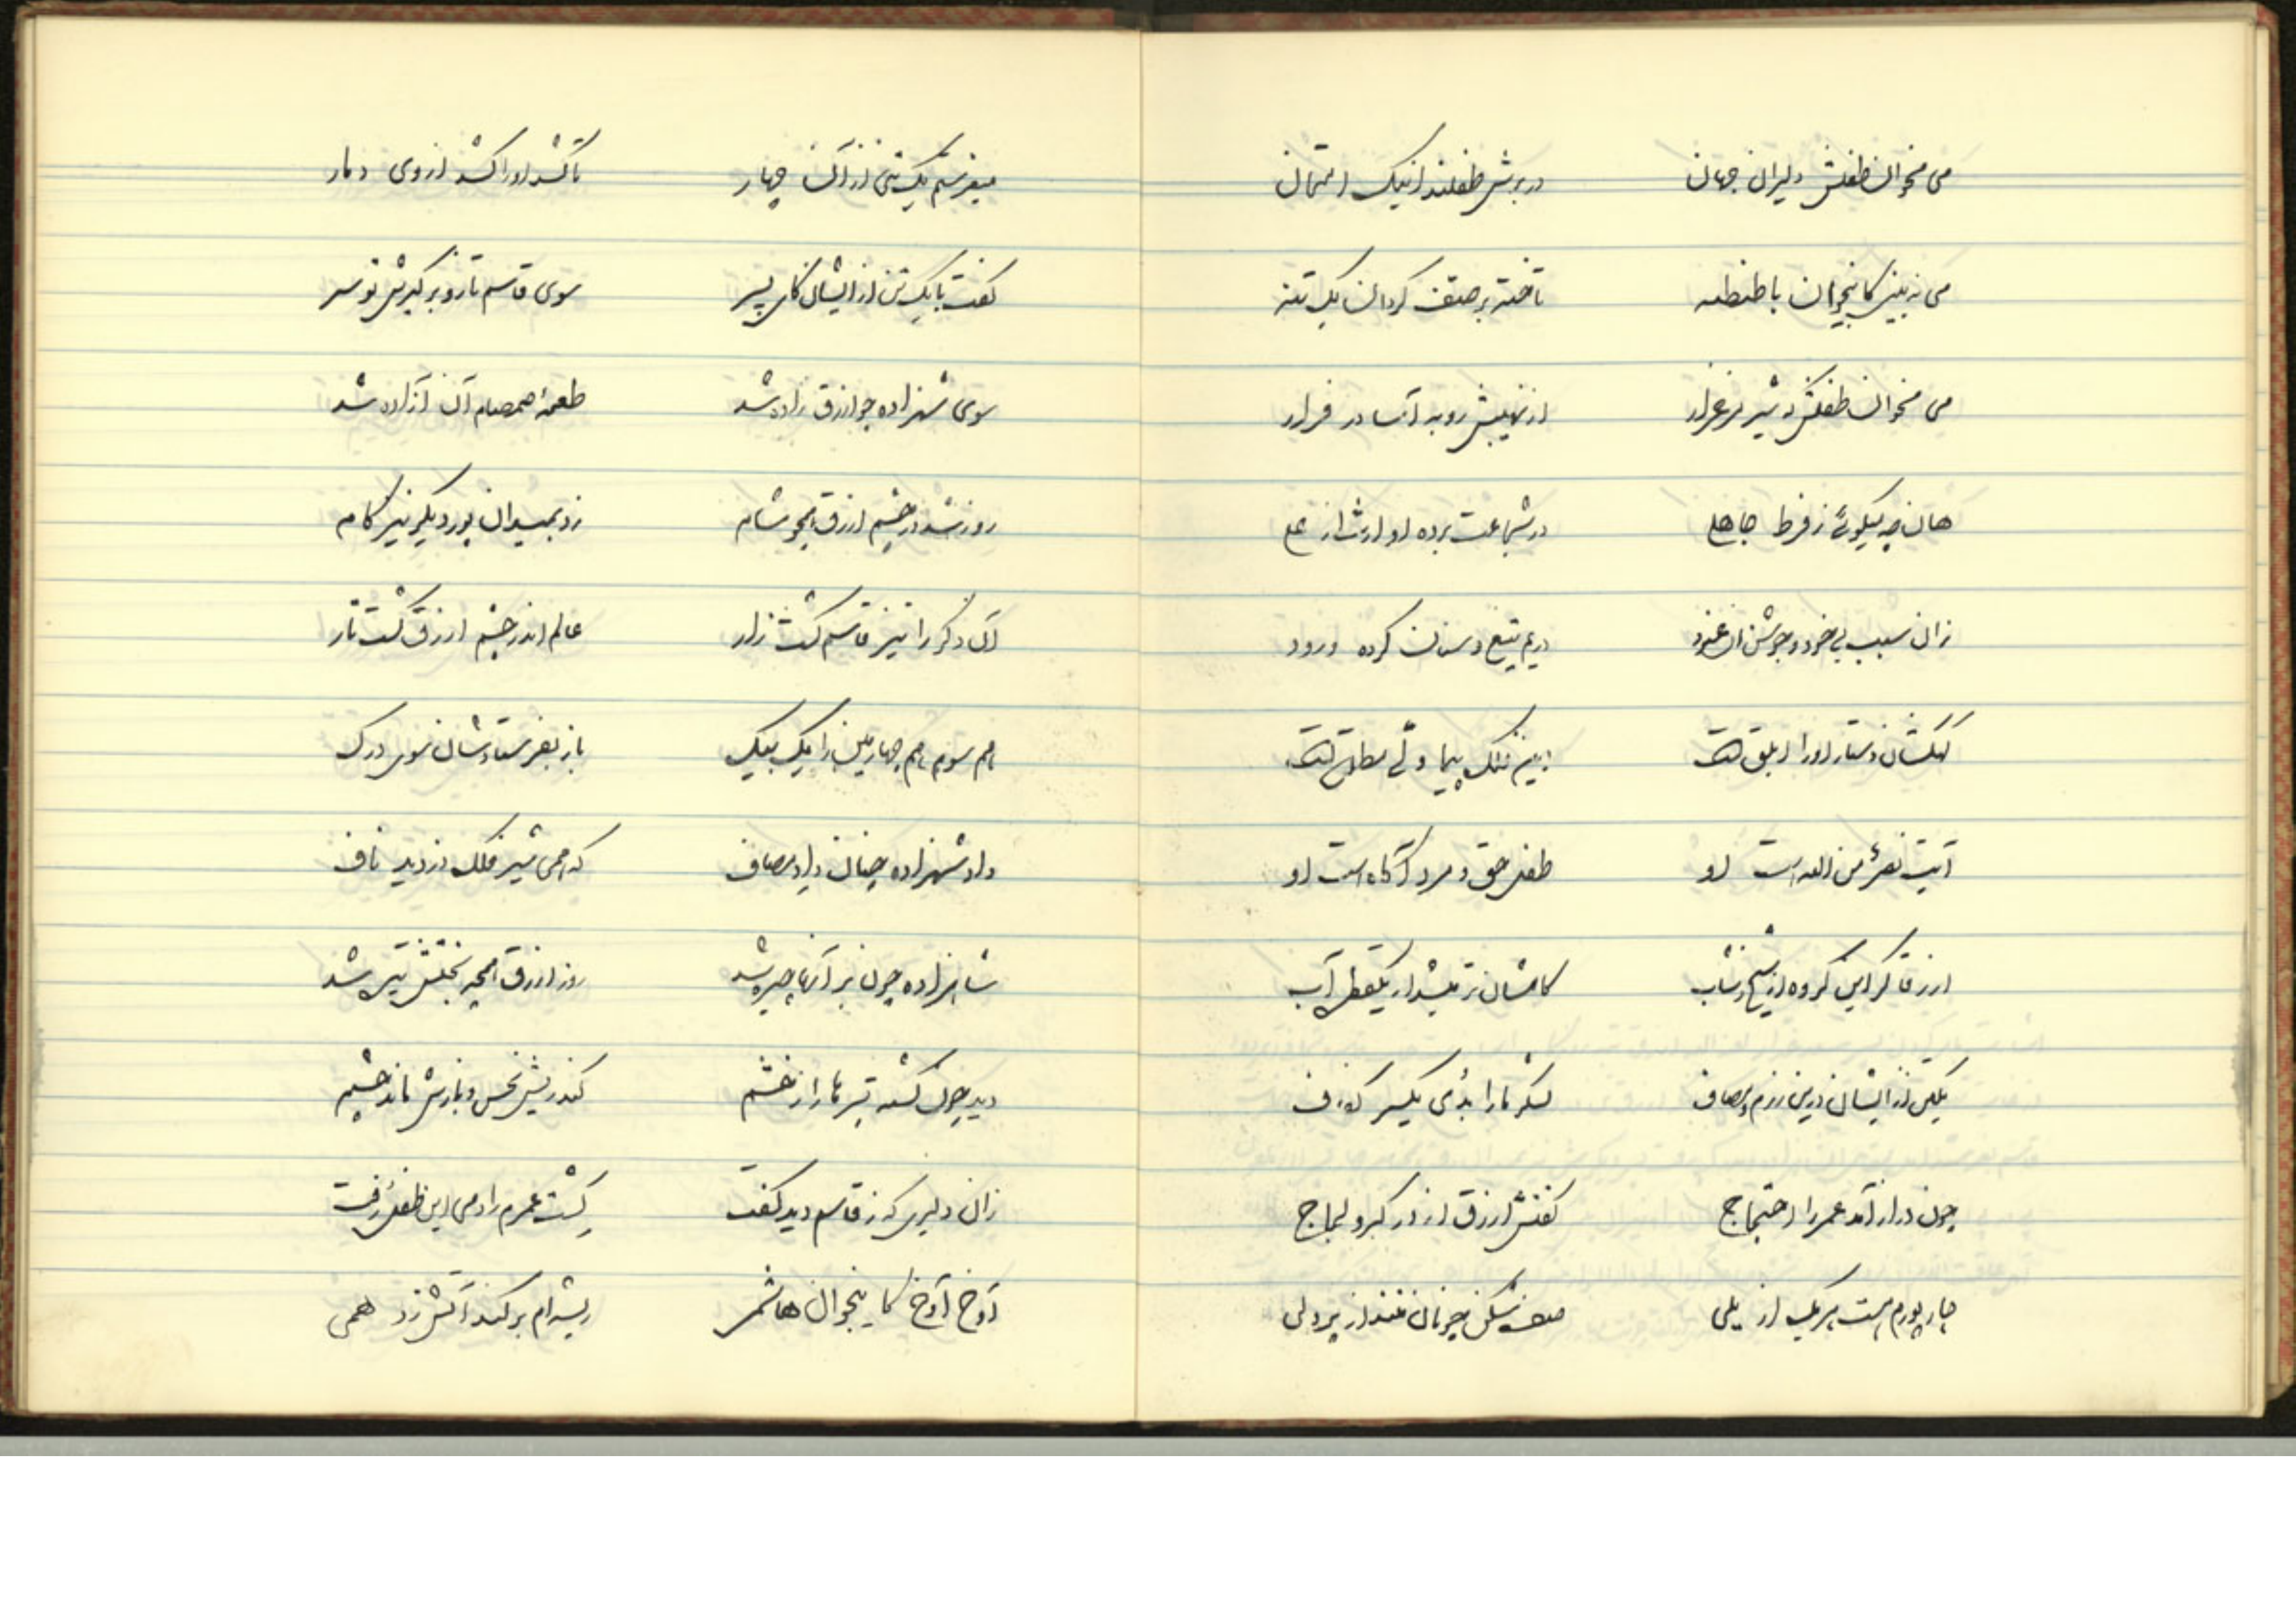 می مخوان طفلش دلیران جهان    در برش طفلند از نیک امتحان
می نه بینی کاینجوان با طنطنه    تاخته بر صف گردان یک تنه
می مخوان طفلش که شیر مرغزار    از نهیبش روبه آسا در فرار
هان چه میگوئی ز فرط جاهلی    در شجاعت برده او ارث از علی
زان سبب بی خود و جوشن آن غنود    در یم تیغ و سنان کرده ورود
کهکشان دستار او را ابلق است    این فلک پیما ولی مطلق است
آیت نصر من الله است او    طفل حق و مرد آگاه است او
ازرقا گر این گروه از شیخ و شاب    کامشان تر میشد از یکقطره آب
یکتن از ایشان درین رزم و مصاف    لشکر ما را بدی یکسر کفاف
چون دراز آمد عمر را احتجاج    گفتش ازرق از در کبر و لجاج
چار پورم هست هر یک از یلی    صف شکن چونان تهمتن از پردلی
میفرستم یک تنی از آن چهار    تا کشد او را کشد از وی دمار
گفت با یک تن از ایشان کای پسر    سوی قاسم تاز و برگیرش تو سر
سوی شهزاده چو ازرق زاده شد    طعمهٔ صمصام آن آزاده شد
روز شد در چشم ازرق همچو شام    زد بمیدان پور دیگر نیز گام
آن دگر را نیز قاسم کشت زار    عالم اندر چشم ازرق گشت تار
هم سوم هم چهارمین را یک بیک    باز بفرستادشان سوی درک
داد شهزاده چنان داد مصاف    که همی شیر فلک دزدید ناف
شاهزاده چون بر آنها چیره شد    روز ازرق همچو بختش تیره شد
دید چون کشته پسرها را ز خشم    کند ریش نحس و بازش ماند چشم
زان دلیری که ز قاسم دید گفت    کشت عمرم را دمی این طفل رفت
آوخ آوخ کاینجوان هاشمی    ریشه‌ام برکند آتش زد همی